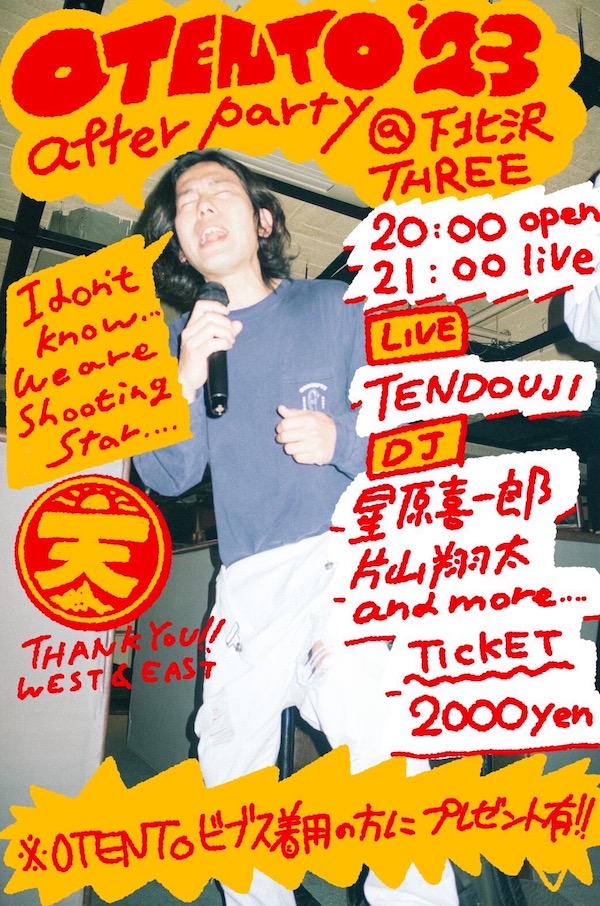 OTENTO '23
after party @下北沢
THREE
20:00 open
21:00 live
I don't
know...
We are
Shooting
Star....
LIVE
TENDOUJI
DJ
星原喜一郎
片山翔太
and more....
天
THANK YOU!!
WEST & EAST
TICKET
2000yen
※OTENTOビブス着用の方にプレゼント有!!